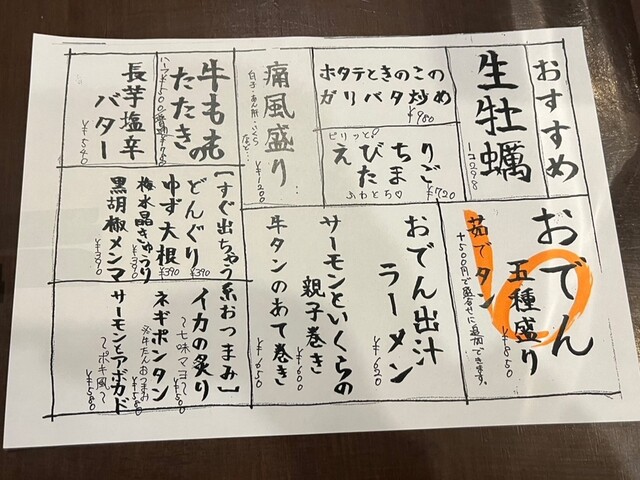 おすすめ
生牡蠣
一コ298
ホタテときのこの
ガリバタ炒め
¥980
ピリッと
えびちり
たまご
ふわとろ♡
¥720
痛風盛り
白子・あん肝・いくら
など…
¥1200
牛ももの
たたき
ハーフ¥500
長芋塩辛
バター
¥540
おでん
五種盛り
¥850
茹でタン
+500円で盛合せに追加できます。
おでん出汁
ラーメン
¥620
サーモンといくらの
親子巻き
¥600
牛タンのあて巻き
¥650
[すぐ出ちゃう系おつまみ]
どんぐり
¥390
ゆず大根
¥390
梅水晶きゅうり
¥390
黒胡椒メンマ
¥390
イカの炙り
〜七味マヨ〜
¥500
ネギポンタン
※牛たんおつまみ
¥580
サーモンとアボカド
〜ポキ風〜
¥580